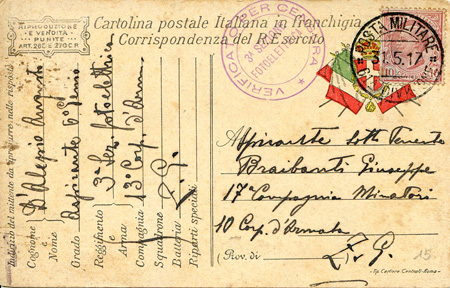 RIPRODUZIONE
E VENDITA
PUNITE
ART. 285 E 270 C.P.
Cartolina postale Italiana in franchigia
Corrispondenza del R. Esercito
VERIFICATO PER CENSURA
3ª SEZIONE
POSTA MILITARE
31.5.17
Indirizzo del mittente da riprodurre nelle risposte
Cognome e Nome D'Alessio Augusto
Grado Aspirante 6° Genio
Reggimento e Arma 3ª Sez. Fotoelettrica
Compagnia 13° Corp. d'Arm
Squadrone
Batteria Z.G.
Riparti speciali
Aspirante Sott Tenente
Braibanti Giuseppe
17 Compagnia Minatori
10 Corp. d'Armata
(Prov. di Z.G.
15
Tip. Cartiere Centrali-Roma